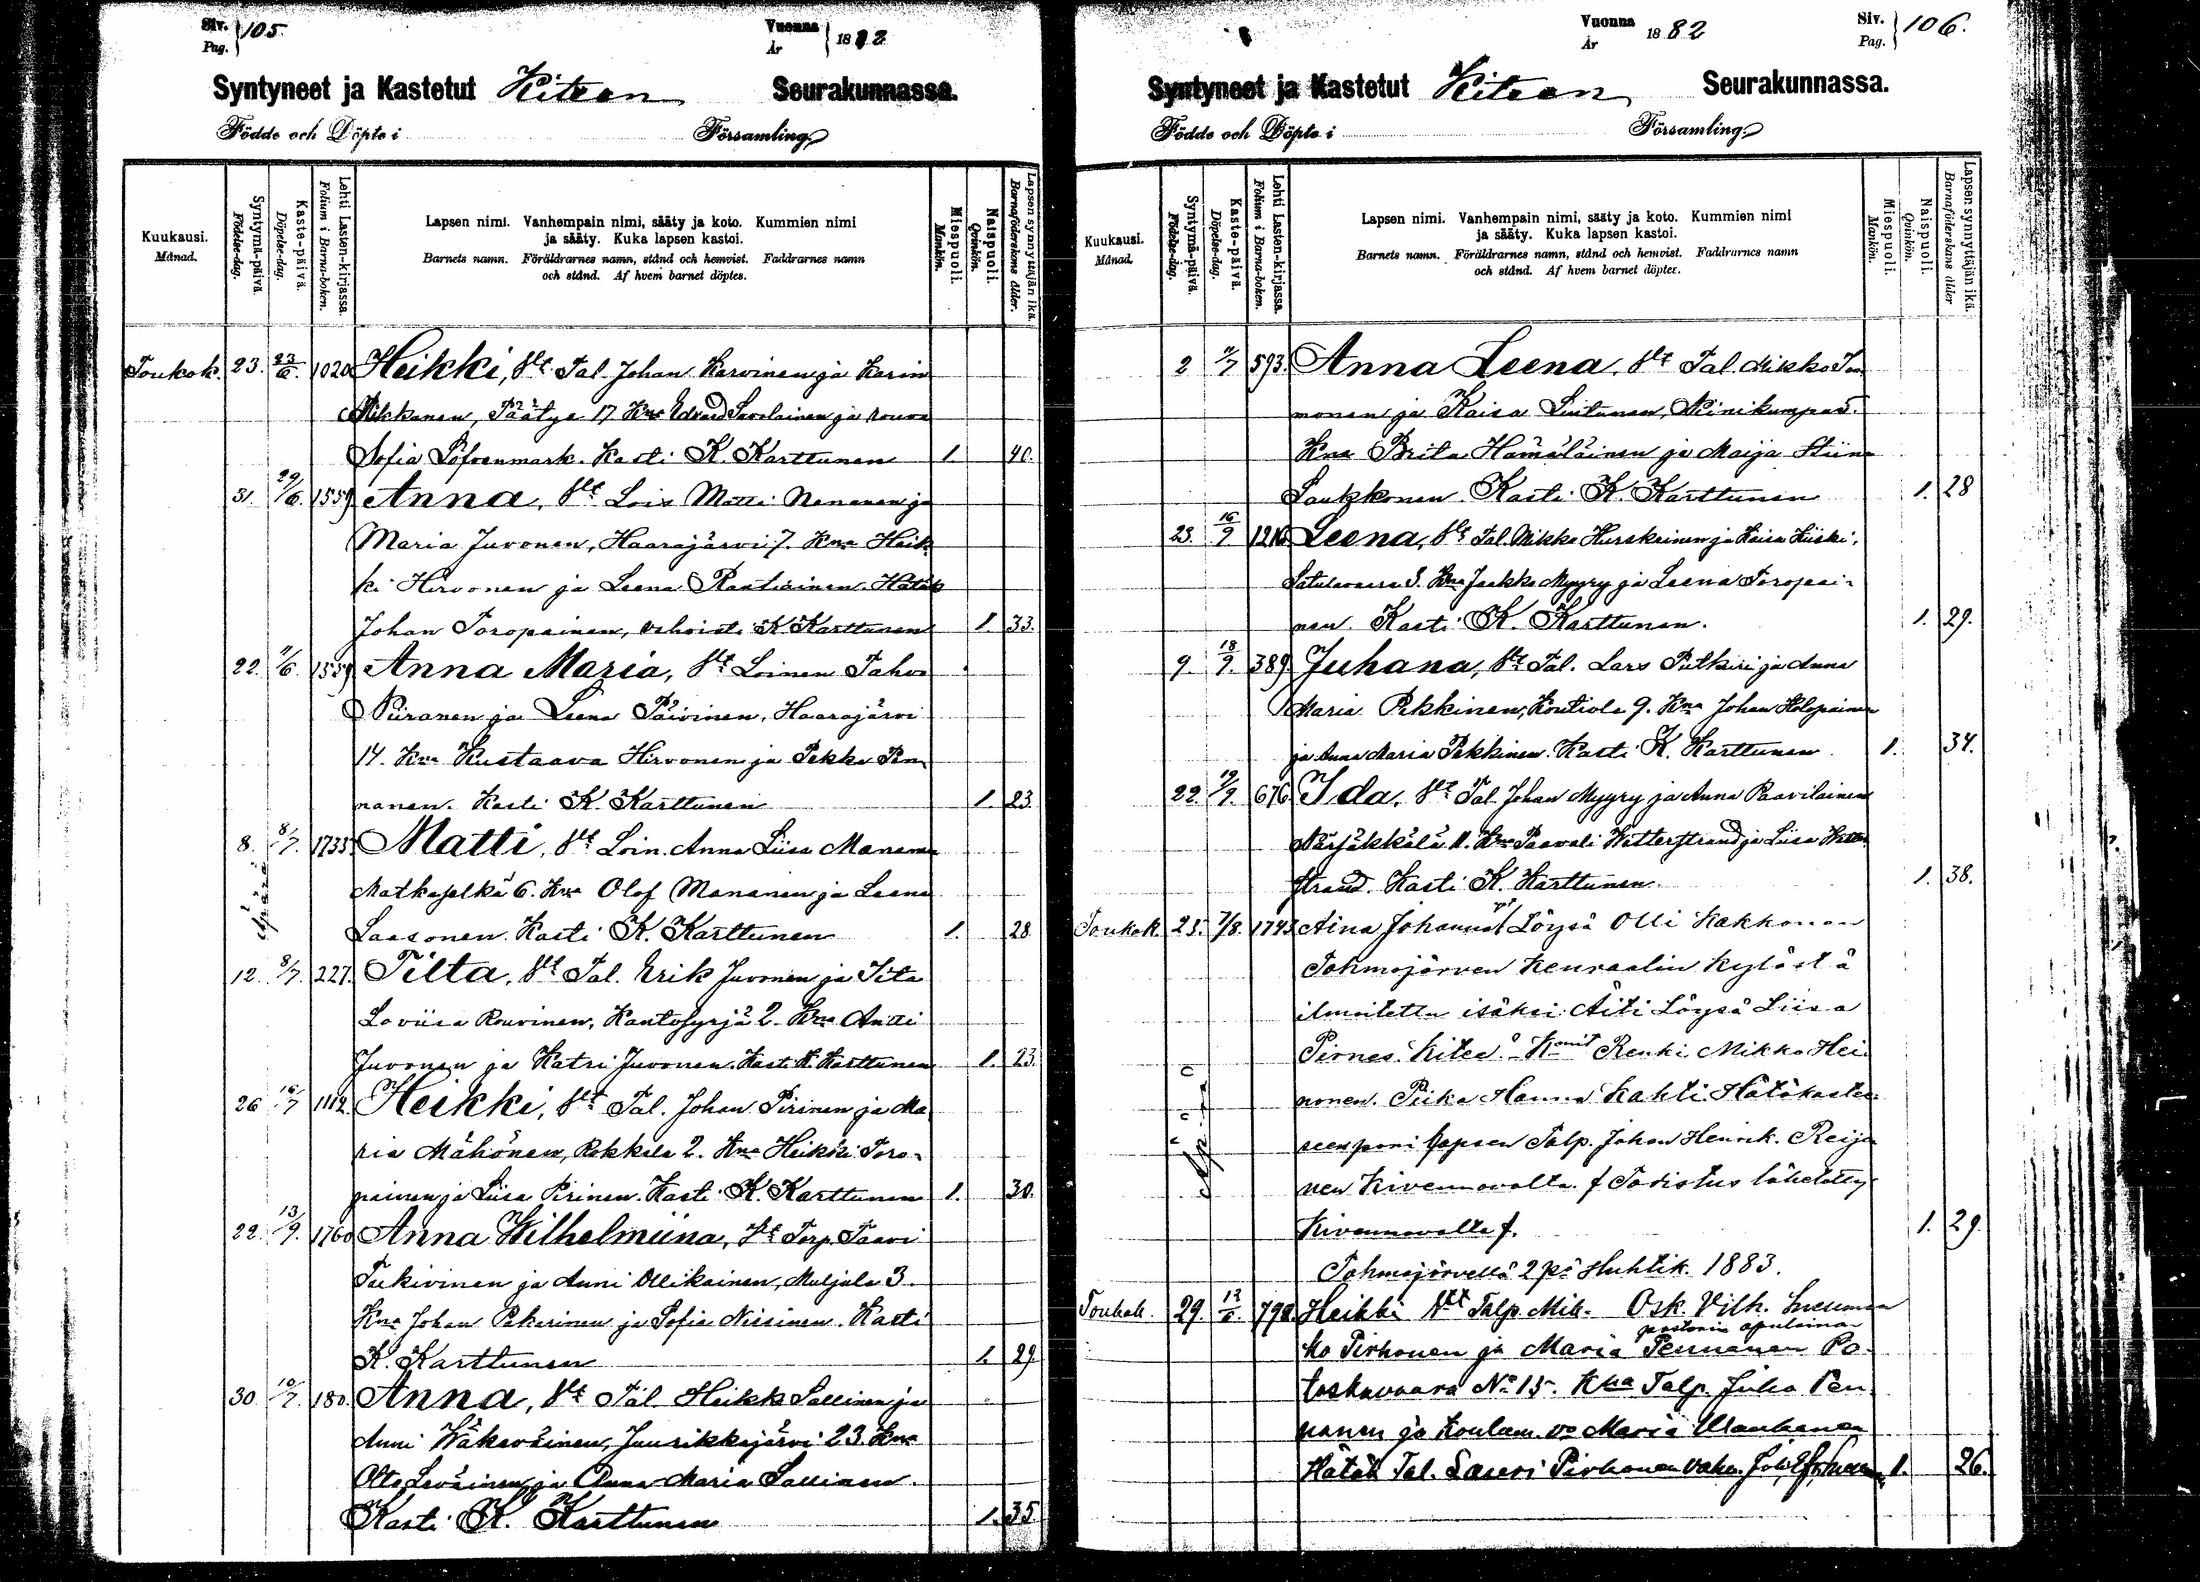 Siv. Pag. 105.
Vuonna År 1882
Syntyneet ja Kastetut Kiteen Seurakunnassa.
Födde och Döpte i Församling
Kuukausi. Månad.
Syntymä-päivä. Födelse-dag.
Kaste-päivä. Döpelse-dag.
Lehti Lasten-kirjassa. Folium i Barna-boken.
Lapsen nimi. Vanhempain nimi, sääty ja koto. Kummien nimi
ja sääty. Kuka lapsen kastoi.
Barnets namn. Föräldrarnes namn, stånd och hemvist. Faddrarnes namn
och stånd. Af hvem barnet döptes.
Miespuoli. Mankön.
Naispuoli. Qvinkön.
Lapsen synnyttäjän ikä. Barnaföderskans ålder.
Toukok. 23. 23/6. 1020 Heikki, Vt Tal. Johan Karvinen ja Karin
Mikkanen, Päätye 17 Kna Edvard Savolainen ja rouva
Sofia Löfvenmark. Kasti K. Karttunen 1. 40.
31. 29/6. 1559 Anna, Vt Lois Matti Nenonen ja
Maria Juvonen, Haarajärvi 7. Kna Heik
ki Hirvonen ja Leena Rautiainen. Hätäk
Johan Toropainen, vahvisti K Karttunen 1. 33.
22. 1/6. 1559 Anna Maria, Vt Loinen Tahvo
Piiranen ja Leena Päivinen, Haarajärvi
14. Kna Kustaava Hirvonen ja Pekka Pen
nanen. Kasti K. Karttunen 1 23.
8. 8/7. 1735 Matti, Vt Loin. Anna Liisa Mananen
Matkaselkä 6. Kna Olof Mananen ja Leena
Laasonen. Kasti K. Karttunen 1. 28
Äpärä
12. 8/7. 227. Tilta, Vt Tal. Erik Juvonen ja Tita
Loviisa Rouvinen, Kantosyrjä 2. Kna Antti
Juvonen ja Katri Juvonen. Kasti K. Karttunen 1. 23.
26 16/7 1112. Heikki, Vt Tal. Johan Pirinen ja Ma
ria Mähönen, Rokkala 2. Kna Heikki Toro-
painen ja Liisa Pirinen. Kasti K. Karttunen 1. 30.
22. 13/9. 1760 Anna Wilhelmiina, Vt Torp. Taavi
Tukivinen ja Anni Ollikainen, Muljula 3.
Kna Johan Pakarinen ja Sofia Nissinen. Kasti
K. Karttunen 1. 29
30. 10/7. 180. Anna, Vt Tal Heikki Sallinen ja
Anni Wäkeväinen, Juurikkajärvi 23. Kna
Otto Leväinen ja Anna Maria Sallinen.
Kasti K. Karttunen 1. 35
Vuonna År 1882
Siv. Pag. 106.
Syntyneet ja Kastetut Kiteen Seurakunnassa.
Födde och Döpte i Församling
Kuukausi. Månad.
Syntymä-päivä. Födelse-dag.
Kaste-päivä. Döpelse-dag.
Lehti Lasten-kirjassa. Folium i Barna-boken.
Lapsen nimi. Vanhempain nimi, sääty ja koto. Kummien nimi
ja sääty. Kuka lapsen kastoi.
Barnets namn. Föräldrarnes namn, stånd och hemvist. Faddrarnes namn
och stånd. Af hvem barnet döptes.
Miespuoli. Mankön.
Naispuoli. Qvinkön.
Lapsen synnyttäjän ikä. Barnaföderskans ålder
2 593. Anna Leena, Vt Tal. Mikko
nonen ja Kaisa Liutunen, Niinikumpu 5.
Kna Brita Hämäläinen ja Maija Stiina
Kasti K. Karttunen 1. 28
23. 16/9 Leena, Vt Tal. Mikko Hurskainen ja Kaisa Kiiski,
Satulavaara 3. Kna Jaakko Myyry ja Leena Toropai-
nen. Kasti K. Karttunen. 1. 29.
9. 18/9. 389. Juhana, Vt Tal. Lars Putkiri ja Anna
Maria Pekkinen, Koutiola 9. Kna Johan Holopainen
ja Anna Maria Pekkinen. Kasti K. Karttunen 1. 34.
22. 19/9. 676. Ida, Vt Tal. Johan Myyry ja Anna Paavilainen
Närsäkkälä 11. Kna Paavali Wetterstrand ja Liisa Wetter
strand. Kasti K. Karttunen. 1. 38.
Toukok. 25. 7/8. 1743 Aina Johanna Löysä Olli Kakkonen
Tohmajärven Kenraalin kylästä
ilmoitettu isäksi. Äiti Löysä Liisa
Pirnes. Kitee. Renki Mikko Hei
nonen. Piika Hanna Kahti. Hätäkastee
seen poni lapsen Talp. Johan Henrik. Reijo
nen Kivennavalta. f Todistus lähetetty
Kivennavalta f. 1. 29.
Äpärä
Tohmajärvellä 2 pä Huhtik. 1883.
Toukok. 29. 12/6. 798. Heikki Vt Talp. Mik- Osk. Vilh. Snellman
pastorin apulainen
ko Pirhonen ja Maria Pennanen Po-
toskavaara No 15. Kna Talp. Juho Pen
nanen ja Koulum. vo Maria
Hätäk Tal. Lauri Pirhonen vahv. 1. 26.